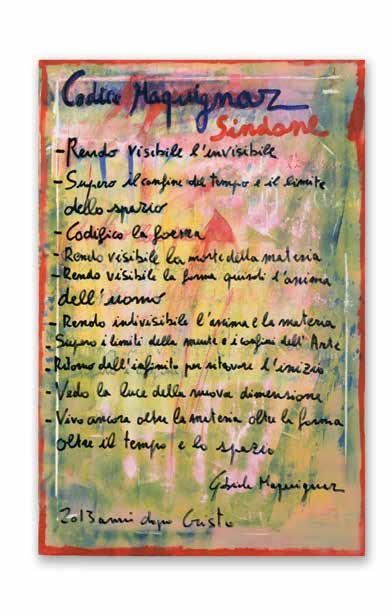 Codice Maquignaz
Sindone
- Rendo visibile l'invisibile
- Supero il confine del tempo e il limite
dello spazio
- Codifico la forma
- Rendo visibile la morte della materia
- Rendo visibile la forma quindi l'anima
dell'uomo
- Rendo indivisibile l'anima e la materia
- Supero i limiti della mente e i confini dell'Arte
- Ritorno dall'infinito per ritovare l'inizio
- Vedo la luce della nuova dimensione
- Vivo ancora oltre la materia oltre la forma
oltre il tempo e lo spazio
Gabriele Maquignaz
2013 anni dopo Cristo